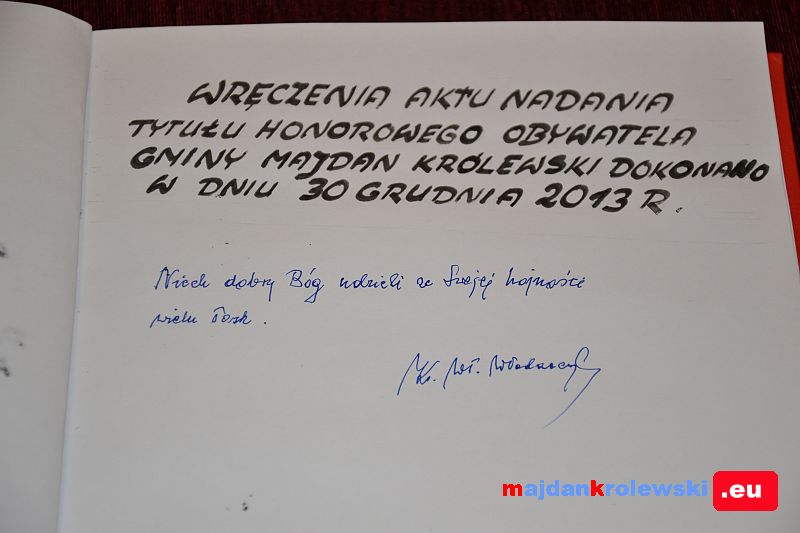 WRĘCZENIA AKTU NADANIA
TYTUŁU HONOROWEGO OBYWATELA
GMINY MAJDAN KRÓLEWSKI DOKONANO
W DNIU 30 GRUDNIA 2013 R.
Niech dobry Bóg udzieli ze Swojej hojności
wielu łask.
Ks. Wł.
majdankrolewski.eu